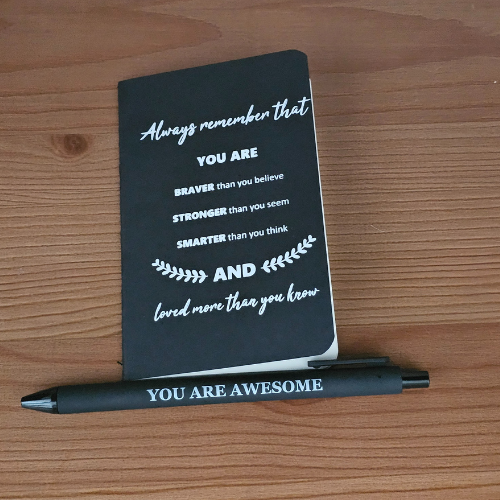 Always remember that
YOU ARE
BRAVER than you believe
STRONGER than you seem
SMARTER than you think
AND
loved more than you know
YOU ARE AWESOME